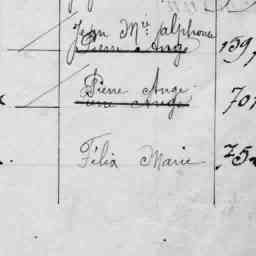 Jean M^ie Alphonse
Pierre Ange 159
Pierre Ange 701
Pierre Ange
Félix Marie 752